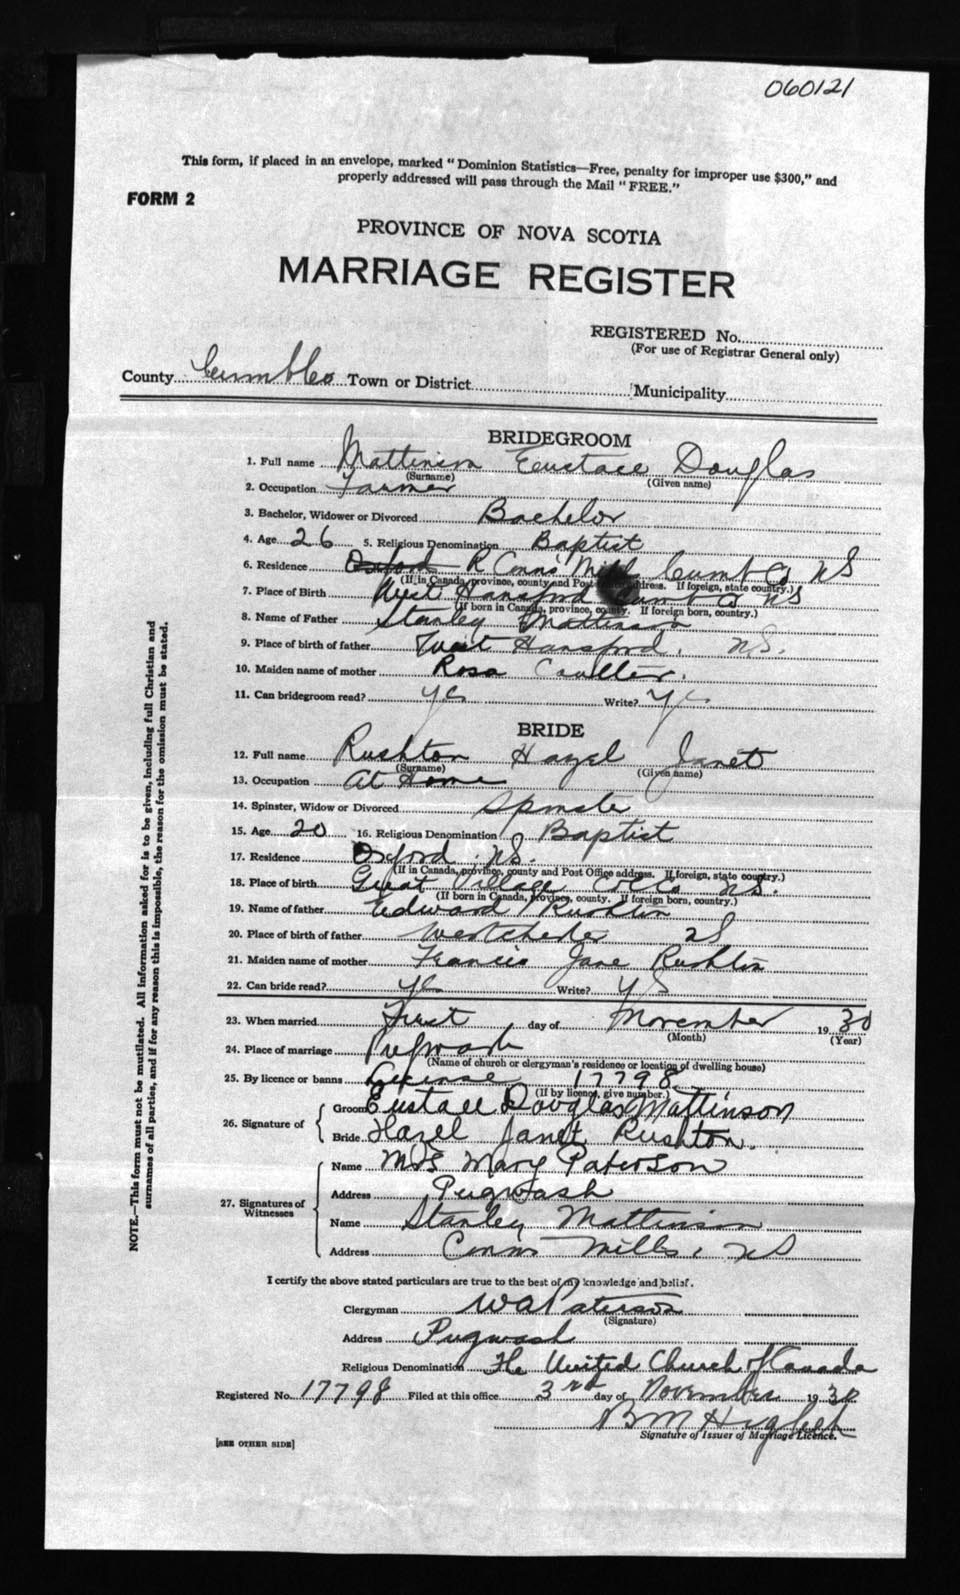 060121
This form, if placed in an envelope, marked "Dominion Statistics—Free, penalty for improper use $300," and
properly addressed will pass through the Mail "FREE."
FORM 2
PROVINCE OF NOVA SCOTIA
MARRIAGE REGISTER
REGISTERED No.
(For use of Registrar General only)
County Cumb Co Town or District Municipality
BRIDEGROOM
1. Full name Mattinson Eustace Douglas
(Surname) (Given name)
2. Occupation Farmer
3. Bachelor, Widower or Divorced Bachelor
4. Age 26 5. Religious Denomination Baptist
6. Residence Oxford R Conns Mill Cumb Co NS
(If in Canada, province, county and Post address. If foreign, state country.)
7. Place of Birth West Hansford Cumb Co NS
(If born in Canada, province, county. If foreign born, country.)
8. Name of Father Stanley Mattinson
9. Place of birth of father West Hansford. NS.
10. Maiden name of mother Rosa Coulter.
11. Can bridegroom read? yes Write? yes
BRIDE
12. Full name Rushton Hazel Janet
(Surname) (Given name)
13. Occupation At Home
14. Spinster, Widow or Divorced Spinster
15. Age 20 16. Religious Denomination Baptist
17. Residence Oxford NS.
(If in Canada, province, county and Post Office address. If foreign, state country.)
18. Place of birth Great Village Col Co NS.
(If born in Canada, province, county. If foreign born, country.)
19. Name of father Edward Rushton
20. Place of birth of father Westchester NS
21. Maiden name of mother Francis Jane Rushton
22. Can bride read? yes Write? yes
23. When married First day of November 1930
(Month) (Year)
24. Place of marriage Pugwash
(Name of church or clergyman's residence or location of dwelling house)
25. By licence or banns License 17798
(If by licence, give number.)
26. Signature of Groom Eustace Douglas Mattinson
Bride Hazel Janet Rushton.
27. Signatures of Witnesses
Name Mrs Mary Paterson
Address Pugwash
Name Stanley Mattinson
Address Conns Mills, NS
I certify the above stated particulars are true to the best of my knowledge and belief.
Clergyman W A Paterson
(Signature)
Address Pugwash
Religious Denomination The United Church of Canada
Registered No. 17798 Filed at this office 3rd day of November 1930
B M
Signature of Issuer of Marriage Licence.
[SEE OTHER SIDE]
NOTE.—This form must not be mutilated. All information asked for is to be given, including full Christian and
surnames of all parties, and if for any reason this is impossible, the reason for the omission must be stated.